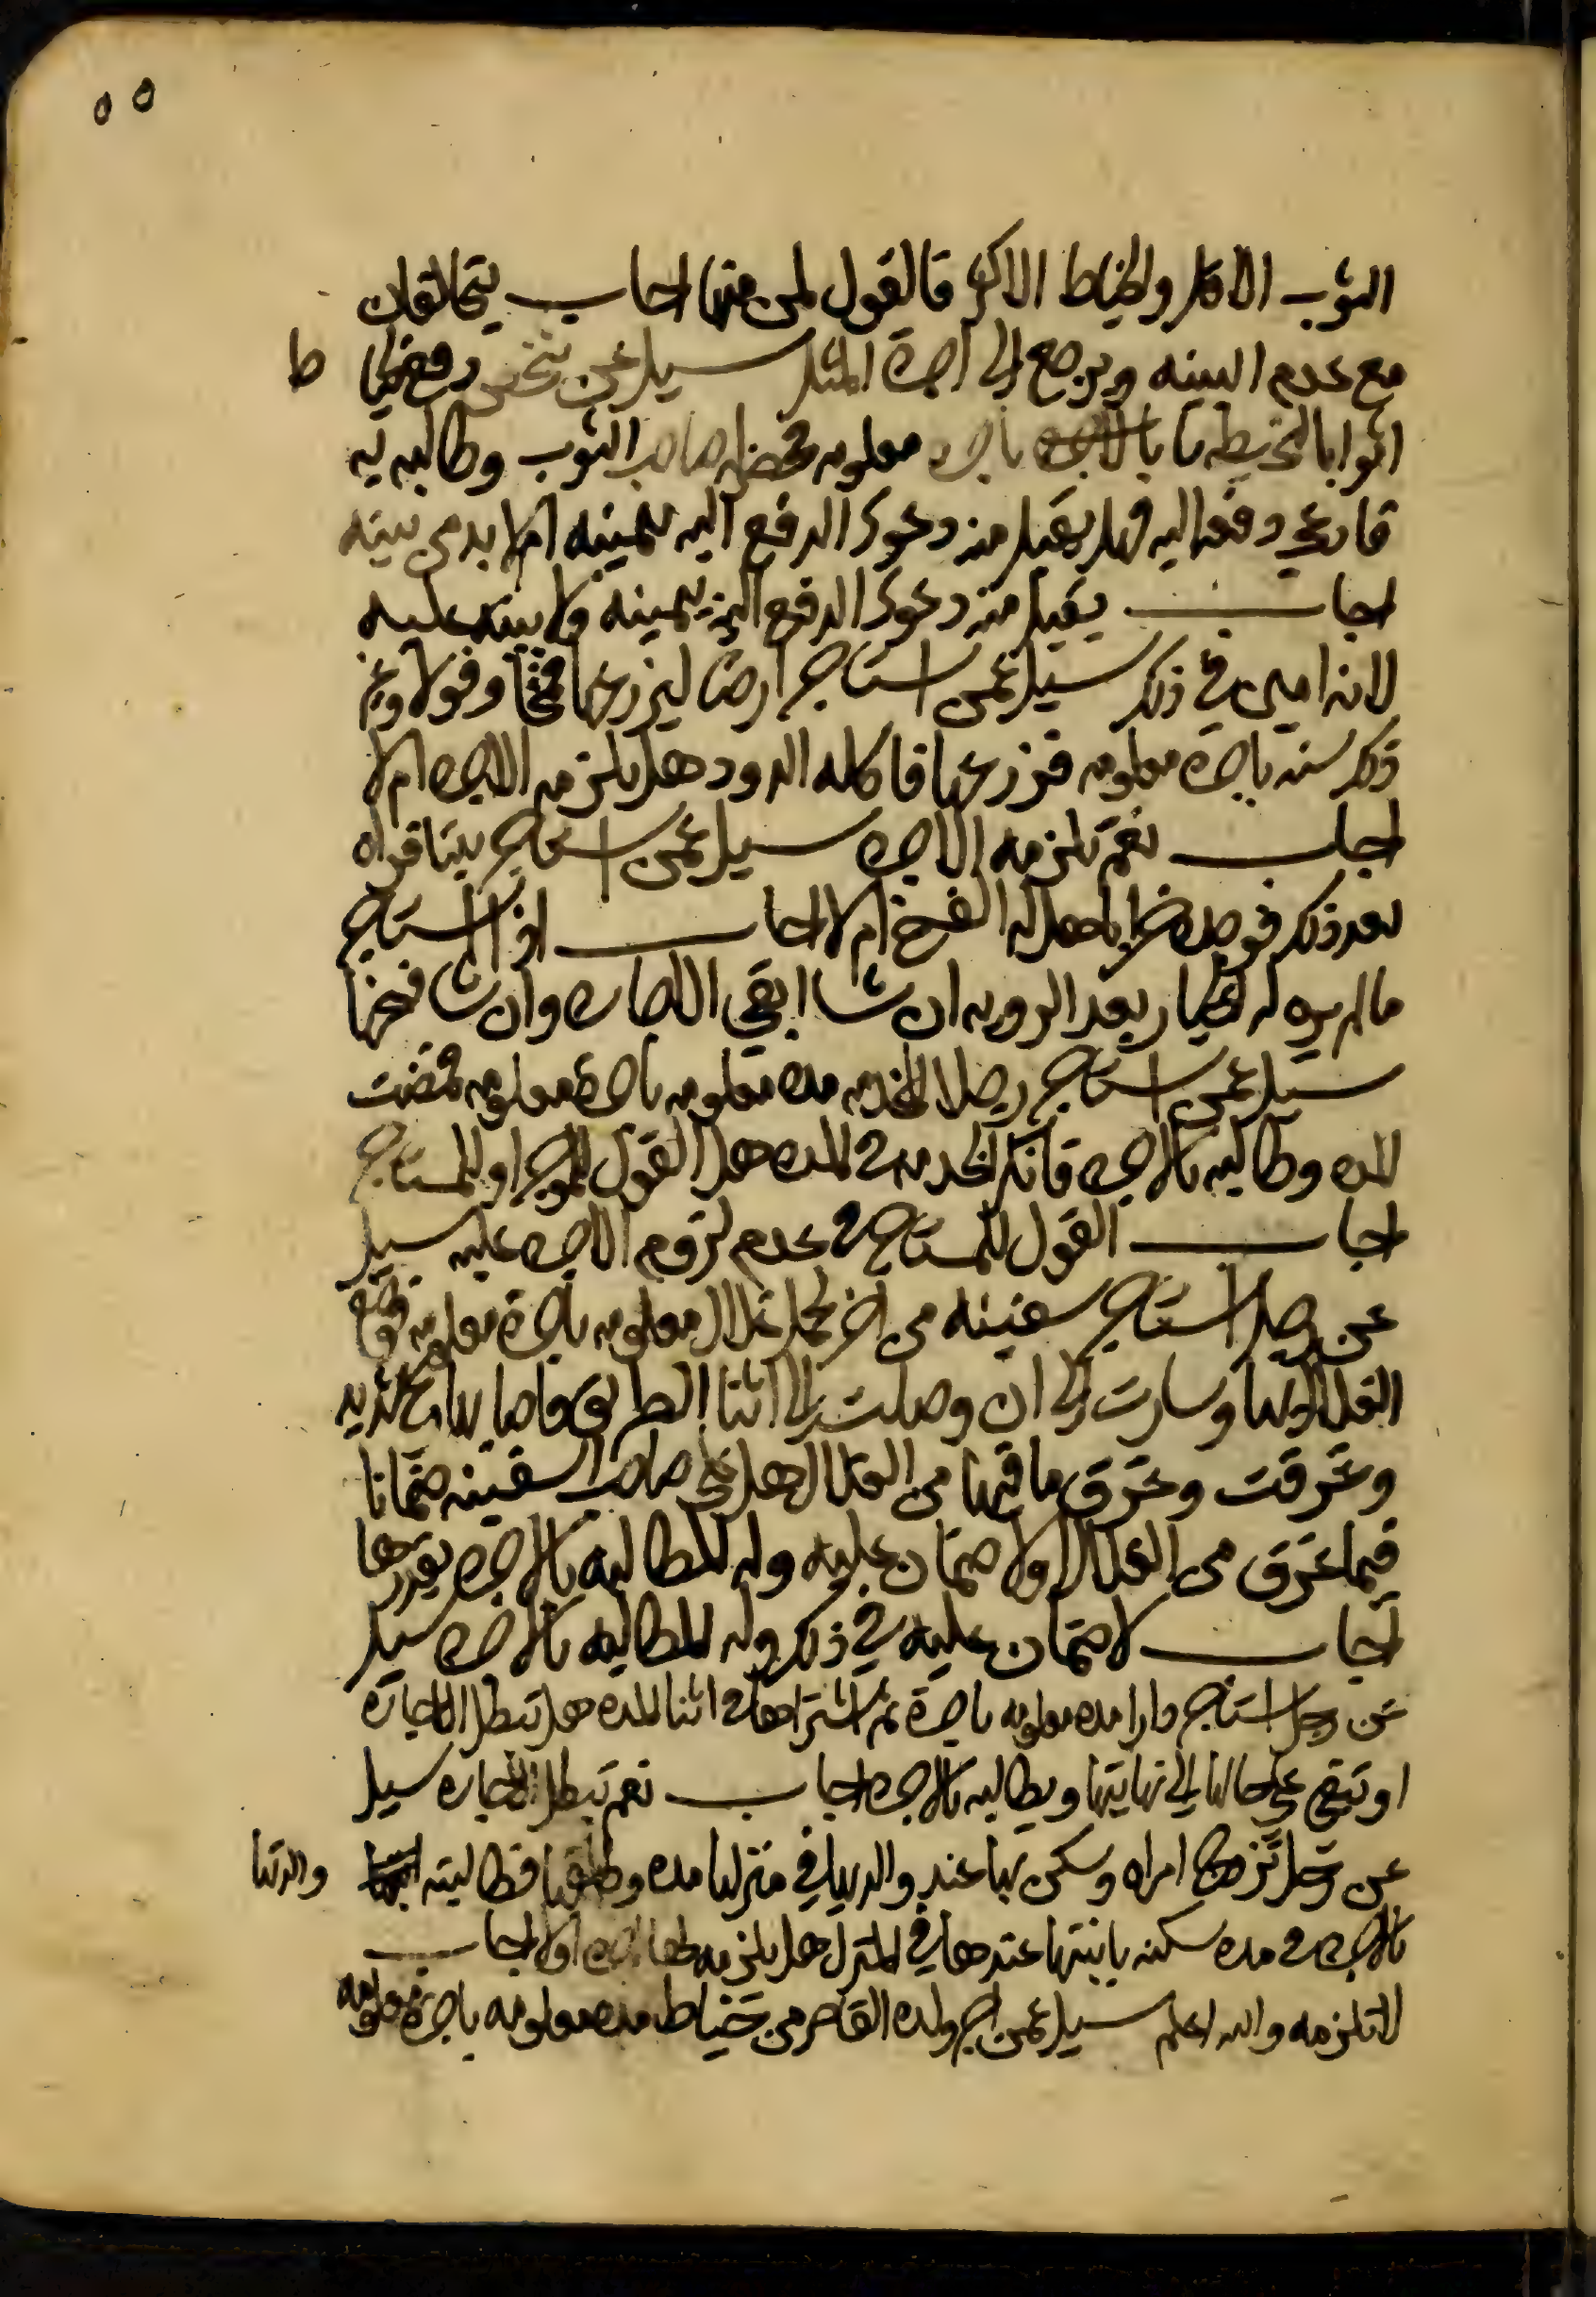 ٥٥
الثوب الاقل والخياط الاكثر فالقول لمن منهما اجاب يتحالفان
مع عدم البينه ويرجع الى اجرة المثل سيل عن شخص دفع لخيا ط
اثوابا لتخيطها باجره معلومه فحضر صاحب الثوب وطالبه به
فادعى دفعه اليه فهل يقبل منه دعوى الدفع اليه بيمينه ام لا بد من بينه
اجاب يقبل منه دعوى الدفع اليه بيمينه ولا بينه عليه
لانه امين في ذلك سيل عمن استاجر ارضا ليزرعها قمحا وفولا وغير
ذلك سنه باجرة معلومه فزرعها فاكله الدود هل يلزمه الاجره ام لا
اجاب نعم تلزمه الاجره سيل عمن استاجر بيتا فراه
بعد ذلك فوجده خرابا هل له الفسخ ام لا اجاب اذا استاجر
ما لم يره له الخيار بعد الرويه ان شا ابقى الاجاره وان شا فسخها
سيل عمن استاجر رجلا لخدمه مده معلومه باجرة معلومه فمضت
المده وطالبه بالاجره فانكر الخدمه في المده هل القول للموجر او للمستاجر
اجاب القول للمستاجر في عدم لزوم الاجره عليه سيل
عن رجل استاجر سفينه من اخر لحمل غلال معلومه باجرة معلومه فوضع
الغلال بها وسارت الى ان وصلت الى اثنا الطريق فاصابها ريح شديد
وغرقت وغرق ما فيها من الغلال هل على صاحب السفينه ضمانا
فيما غرق من الغلال اولا ضمان عليه وله المطالبه بالاجره بقدرها
اجاب لا ضمان عليه في ذلك وله المطالبه بالاجره سيل
عن رجل استاجر دارا مده معلومه باجرة ثم اشتراها في اثنا المده هل تبطل الاجاره
او تبقى على حالها الى نهايتها ويطالبه بالاجره اجاب نعم تبطل الاجاره سيل
عن رجل تزوج امراه وسكن بها عند والديها في منزلها مده وطلقها فطالبته والدتها
بالاجره في مده سكنه بابنتها عندها في المنزل هل يلزمه لها اجره اولا اجاب
لا تلزمه والله اعلم سيل عمن اجر ولده القاصر من خياط مده معلومه باجرة معلومه